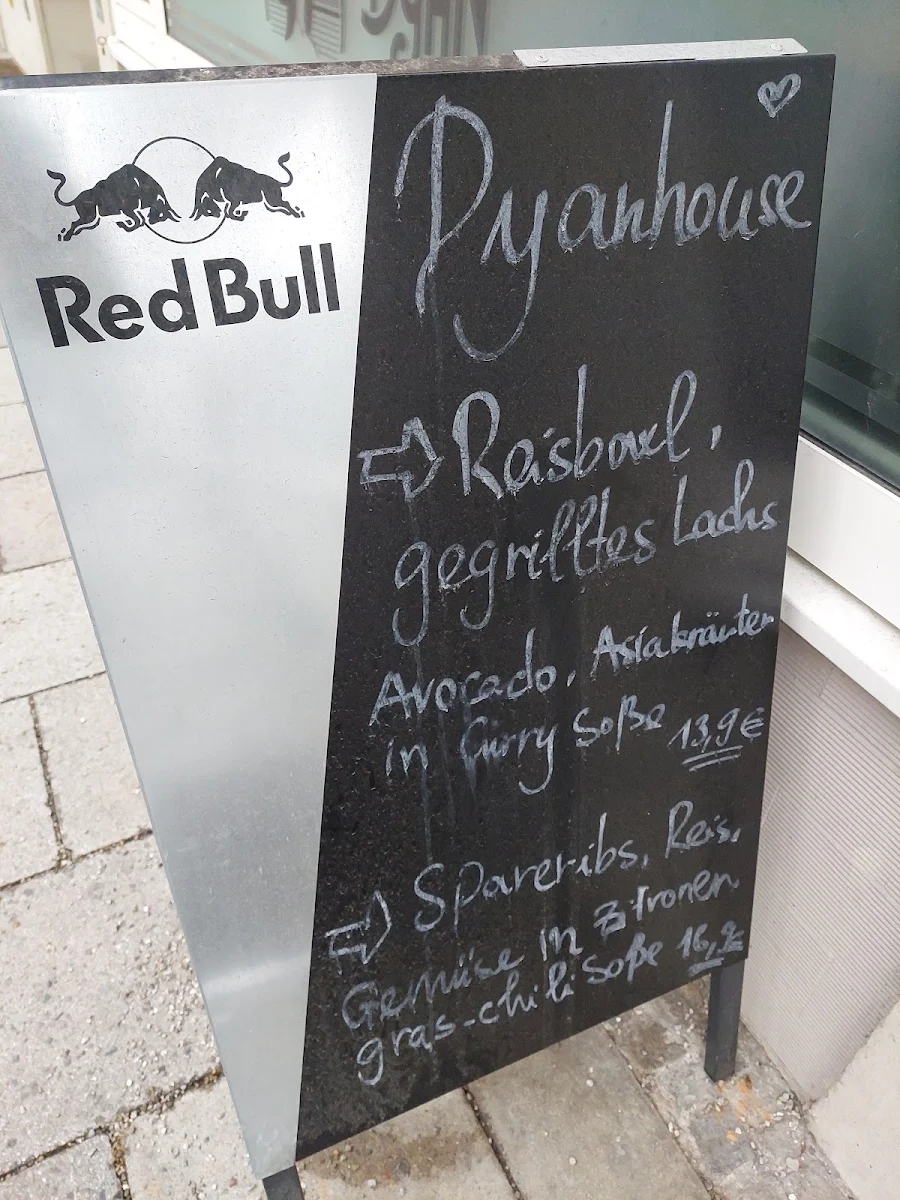 Red Bull
Dyanhouse
Reisbowl,
gegrilltes Lachs
Avocado, Asiakräuter
in Curry Soße 13,9€
Spareribs, Reis,
Gemüse in Zitronen
gras-chili Soße